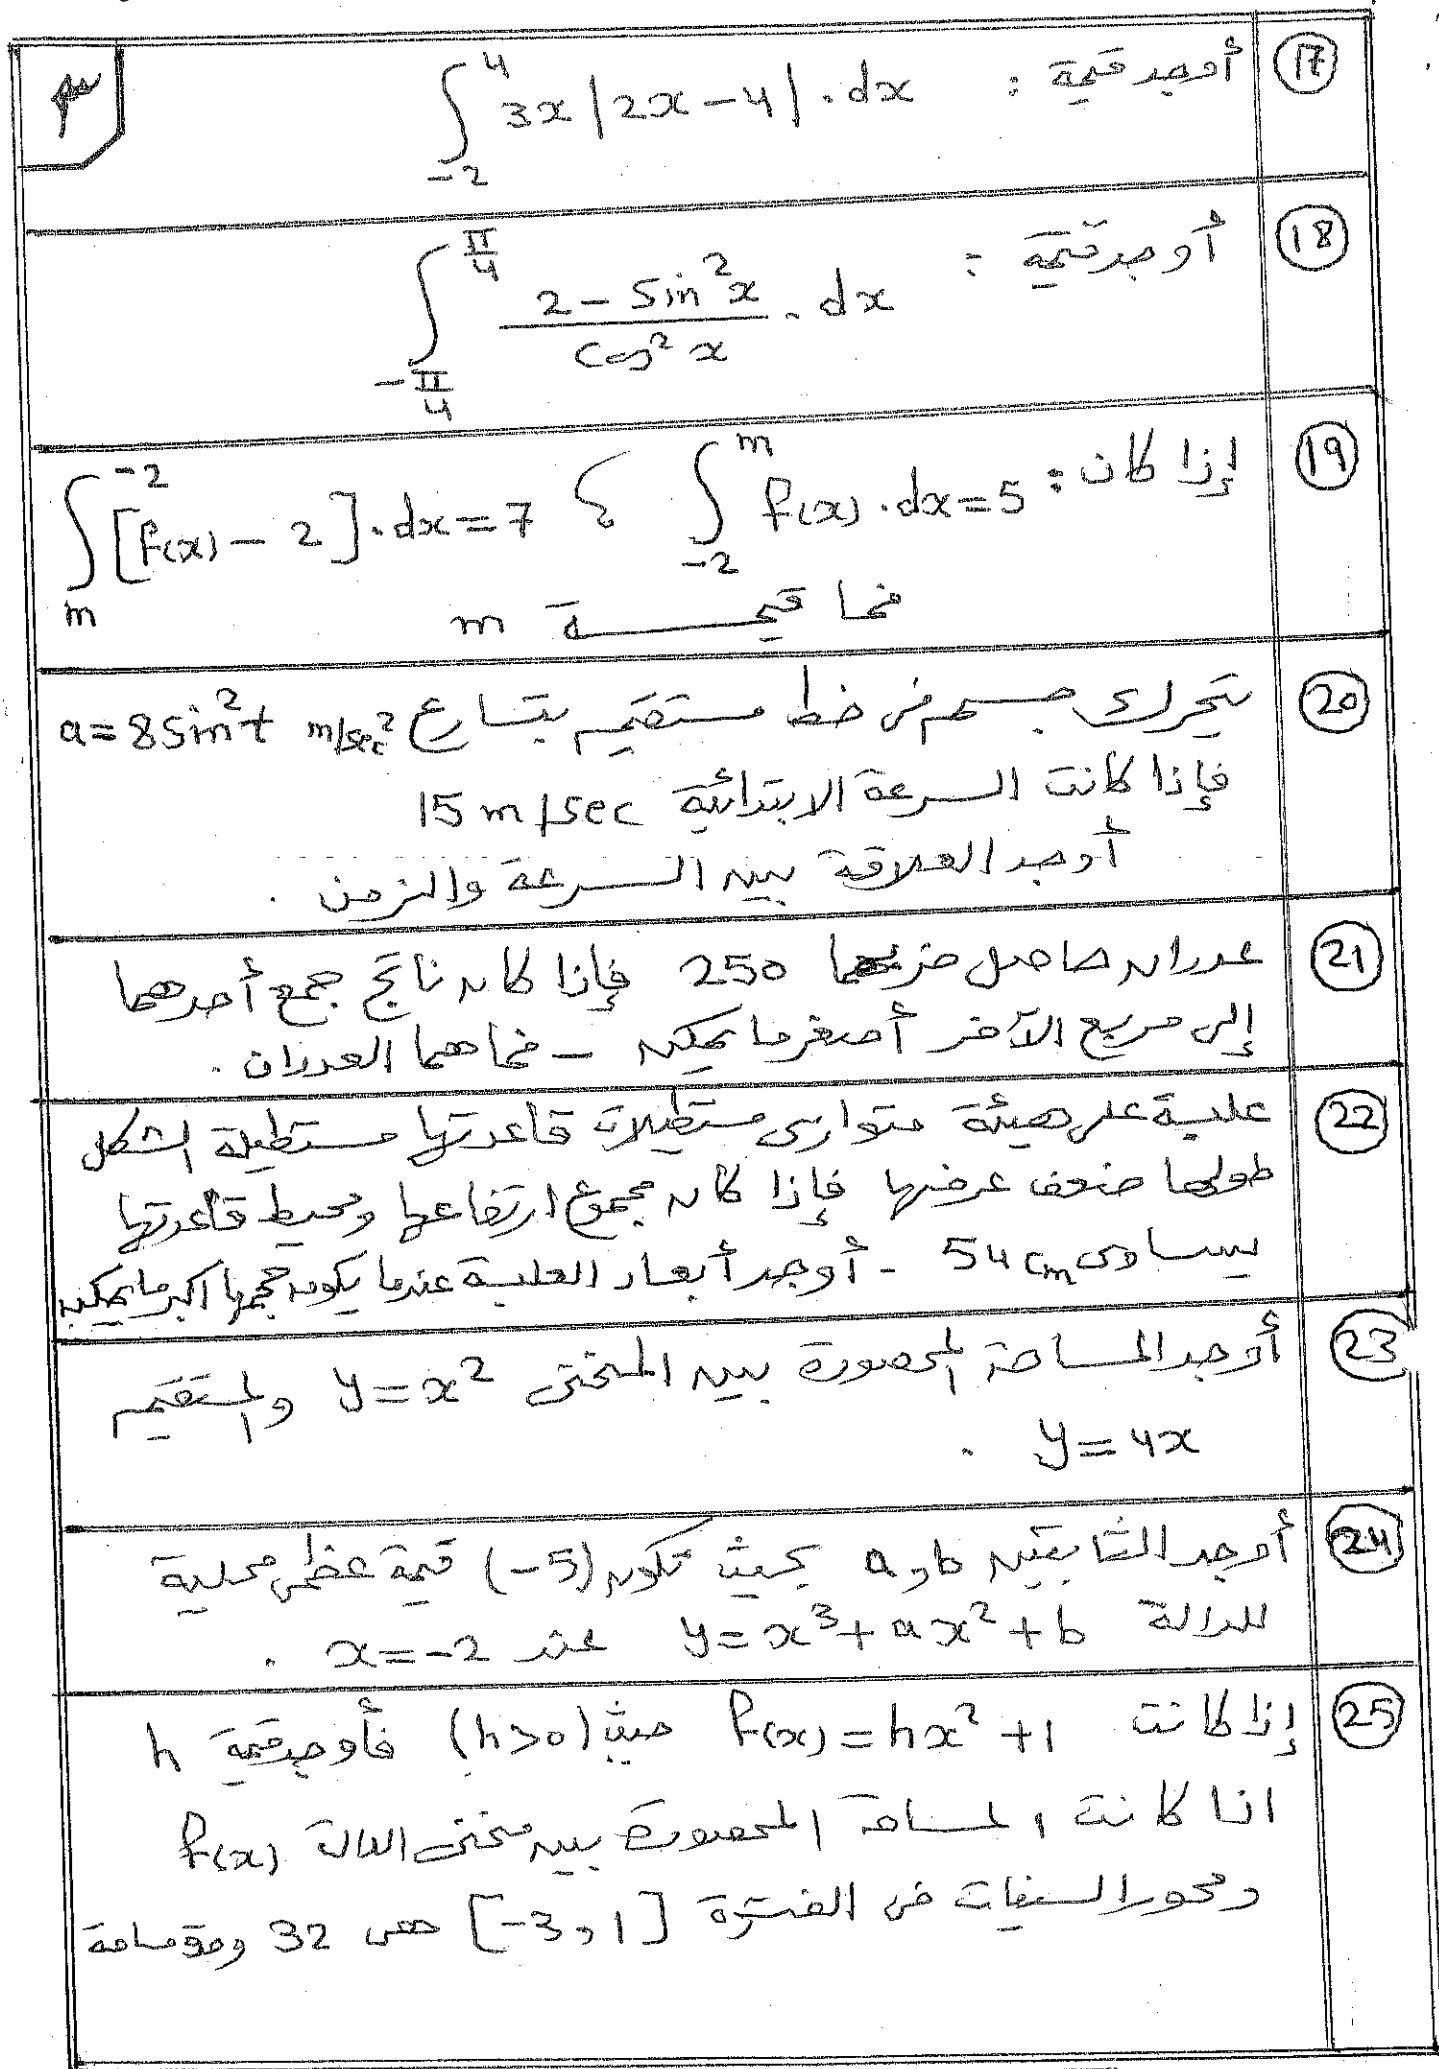 ٣
(17) أوجد قيمة : ∫_{-2}^{4} 3x|2x-4|.dx
(18) أوجد قيمة : ∫_{-π/4}^{π/4} (2 - Sin²x)/(Cos²x) . dx
(19) إذا كان : ∫_{-2}^{m} f(x).dx = 5 ، ∫_{m}^{-2} [f(x) - 2].dx = 7
فما قيمة m
(20) يتحرك جسم فى خط مستقيم بتسارع a = 8 Sin²t m/sec²
فإذا كانت السرعة الابتدائية 15 m/sec
أوجد العلاقة بين السرعة والزمن .
(21) عددان حاصل ضربهما 250 فإذا كان ناتج جمع أحدهما
إلى مربع الآخر أصغر ما يمكن - فما هما العددان .
(22) علبة على هيئة متوازى مستطيلات قاعدتها مستطيلة الشكل
طولها ضعف عرضها فإذا كان مجموع ارتفاعها ومحيط قاعدتها
يساوى 54 cm - أوجد أبعاد العلبة عندما يكون حجمها اكبر ما يمكن
(23) أوجد المساحة المحصورة بين المنحنى y = x² والمستقيم
y = 4x .
(24) أوجد الثابتين a و b بحيث تكون (-5) قيمة عظمى محلية
للدالة y = x³ + ax² + b عند x = -2 .
(25) إذا كانت f(x) = hx² + 1 حيث (h>0) فأوجد قيمة h
اذا كانت المساحة المحصورة بين منحنى الدالة f(x)
ومحور السينات فى الفترة [-3 , 1] هى 32 وحدة مساحة